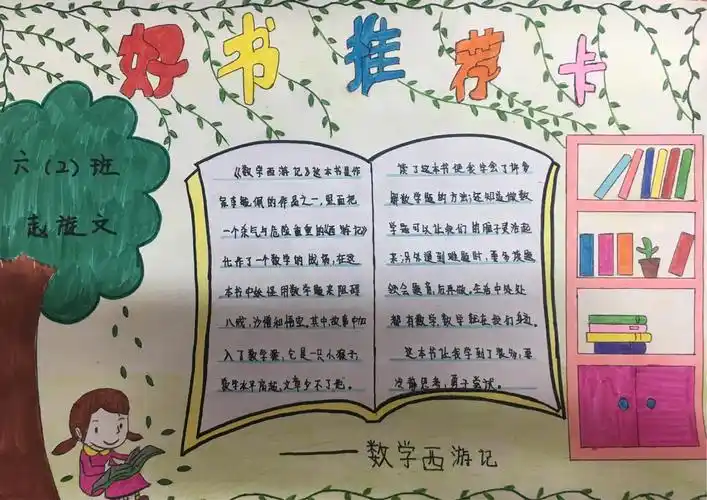 好书推荐卡
六（2）班
赵漩文
《数学西游记》这本书是作
家李毓佩的作品之一，里面把
一个杀气与危险重重的《西游记》
化作了一个数学的战备，在这
本书中妖怪用数学题来阻碍
八戒，沙僧和悟空。其中，故事中加
入了数学猴，它是一只小猴子，
数学水平高超，文章少不了它。
读了这本书使我学会了许多
解数学题的方法；还知道做数
学题可以让我们的脑子灵活起
来。另外遇到难题时，要多读题
领会题意，后再做。生活中处处
都有数学，数学就在我们身边。
这本书让我学到了宽物，要
冷静思考，勇于尝试。
——数学西游记